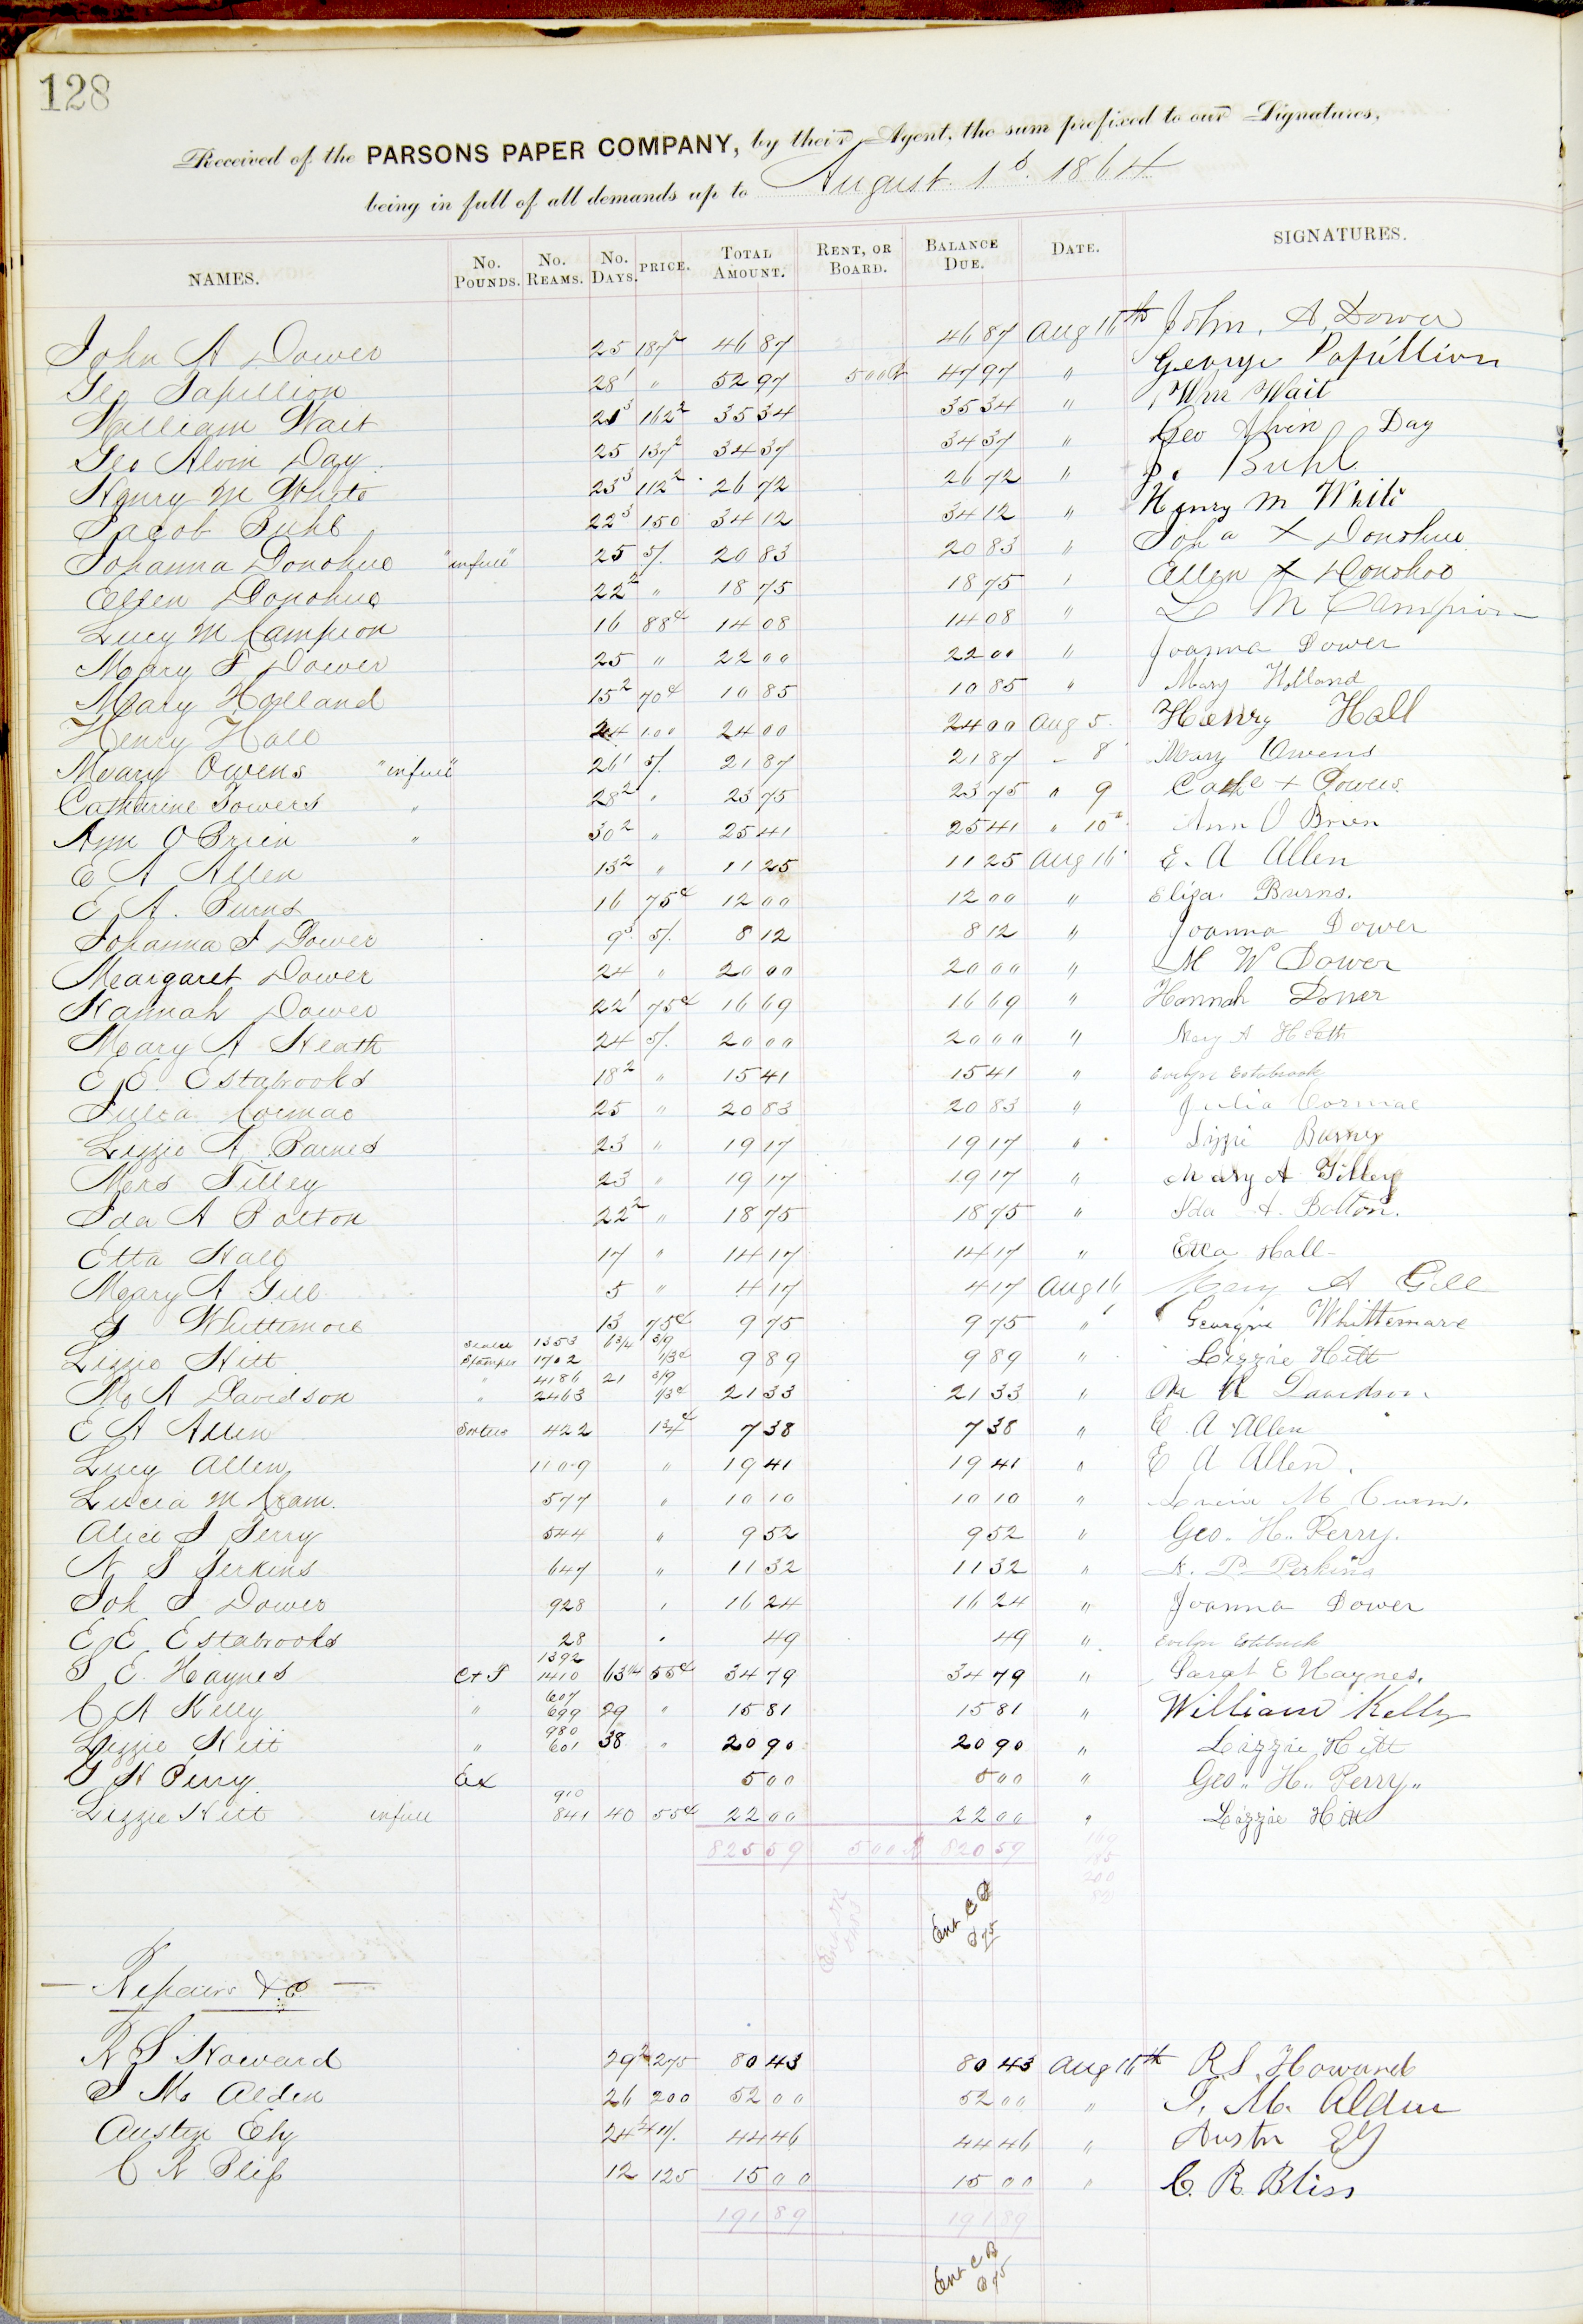 128
Received of the PARSONS PAPER COMPANY, by their Agent, the sum prefixed to our Signatures,
being in full of all demands up to August. 1st. 1864
NAMES. No. POUNDS. No. REAMS. No. DAYS. PRICE. TOTAL AMOUNT. RENT, OR BOARD. BALANCE DUE. DATE. SIGNATURES.
John A Dower 25 187² 46 87 46 87 Aug 16th John. A. Dower
Geo Papillion 28¹ " 52 97 5 00 47 97 " George Papillion
William Wait 21³ 162² 35 34 35 34 " Wm Wait
Geo Alvin Day 25 137² 34 37 34 37 " Geo Alvin Day
Henry M White 23³ 112² 26 72 26 72 " J. Buhl
Jacob Buhl 22³ 150 34 12 34 12 " Henry M White
Johanna Donohue "infull" 25 5/. 20 83 20 83 " Joha X Donohue
Ellen Donohue 22² " 18 75 18 75 " Ellen X Donohoe
Lucy M Campion 16 88¢ 14 08 14 08 " L M Campion
Mary F Dower 25 " 22 00 22 00 " Joanna Dower
Mary Holland 15² 70¢ 10 85 10 85 " Mary Holland
Henry Hall 24 100 24 00 24 00 Aug 5 Henry Hall
Mary Owens "infull" 26¹ 5/. 21 87 21 87 " 8 Mary Owens
Catharine Powers " 28² " 23 75 23 75 " 9 Cathe + Powers
Ann O Brien " 30² " 25 41 25 41 " 10 Ann O Brien
E A Allen 13² " 11 25 11 25 Aug 16 E. A Allen
E A. Burns 16 75¢ 12 00 12 00 " Eliza Burns.
Johanna J Dower 9³ 5/. 8 12 8 12 " Joanna Dower
Margaret Dower 24 " 20 00 20 00 " M W Dower
Hannah Dower 22¹ 75¢ 16 69 16 69 " Hannah Dower
Mary A Heath 24 5/. 20 00 20 00 " Mary A Heath
E E. Estabrooks 18² " 15 41 15 41 " Evelyn Estabrook
Julia Cormac 25 " 20 83 20 83 " Julia Cormac
Lizzie A. Barnes 23 " 19 17 19 17 " Lizzie Barnes
Mrs Tilley 23 " 19 17 19 17 " Mary A Tilley
Ida A Bolton 22² " 18 75 18 75 " Ida A. Bolton.
Etta Hall 17 " 14 17 14 17 " Etta Hall
Mary A Gill 5 " 4 17 4 17 Aug 16 Mary A Gill
G Whittemore 13 75¢ 9 75 9 75 " Georgia Whittemore
1353 6¾ 3/9
Lizzie Hitt Stamper 1702 1/3¢ 9 89 9 89 " Lizzie Hitt
" 4186 21 3/9
M A Davidson " 2463 1/3¢ 21 33 21 33 " M A Davidson
E A Allen Sorters 422 1¾¢ 7 38 7 38 " E. A Allen
Lucy Allen 1109 " 19 41 19 41 " E A Allen.
Lucia M Cram. 577 " 10 10 10 10 " Lucia M Cram.
Alice J Perry 544 " 9 52 9 52 " Geo. H. Perry.
N P Perkins 647 " 11 32 11 32 " N. P. Perkins
Joh J Dower 928 " 16 24 16 24 " Joanna Dower
E E Estabrooks 28 " 49 49 " Evelyn Estabrook
1392
S E. Haynes C+P 1410 63¼ 55¢ 34 79 34 79 " Sarah E Haynes.
607
C A Kelly " 699 29 " 15 81 15 81 " William Kelly
980
Lizzie Hitt " 601 38 " 20 90 20 90 " Lizzie Hitt
G H Perry Ex 5 00 5 00 " Geo. H. Perry
910
Lizzie Hitt infull 841 40 55¢ 22 00 22 00 " Lizzie Hitt
825 59 5 00 820 59
Ent C B
Repairs &c
R S Howard 29² 275 80 43 80 43 Aug 16th R S. Howard
J M Alden 26 200 52 00 52 00 " J. M. Alden
Austin Ely 24² 11/. 44 46 44 46 " Austin Ely
C R Bliss 12 125 15 00 15 00 " C. R. Bliss
191 89 191 89
Ent C B